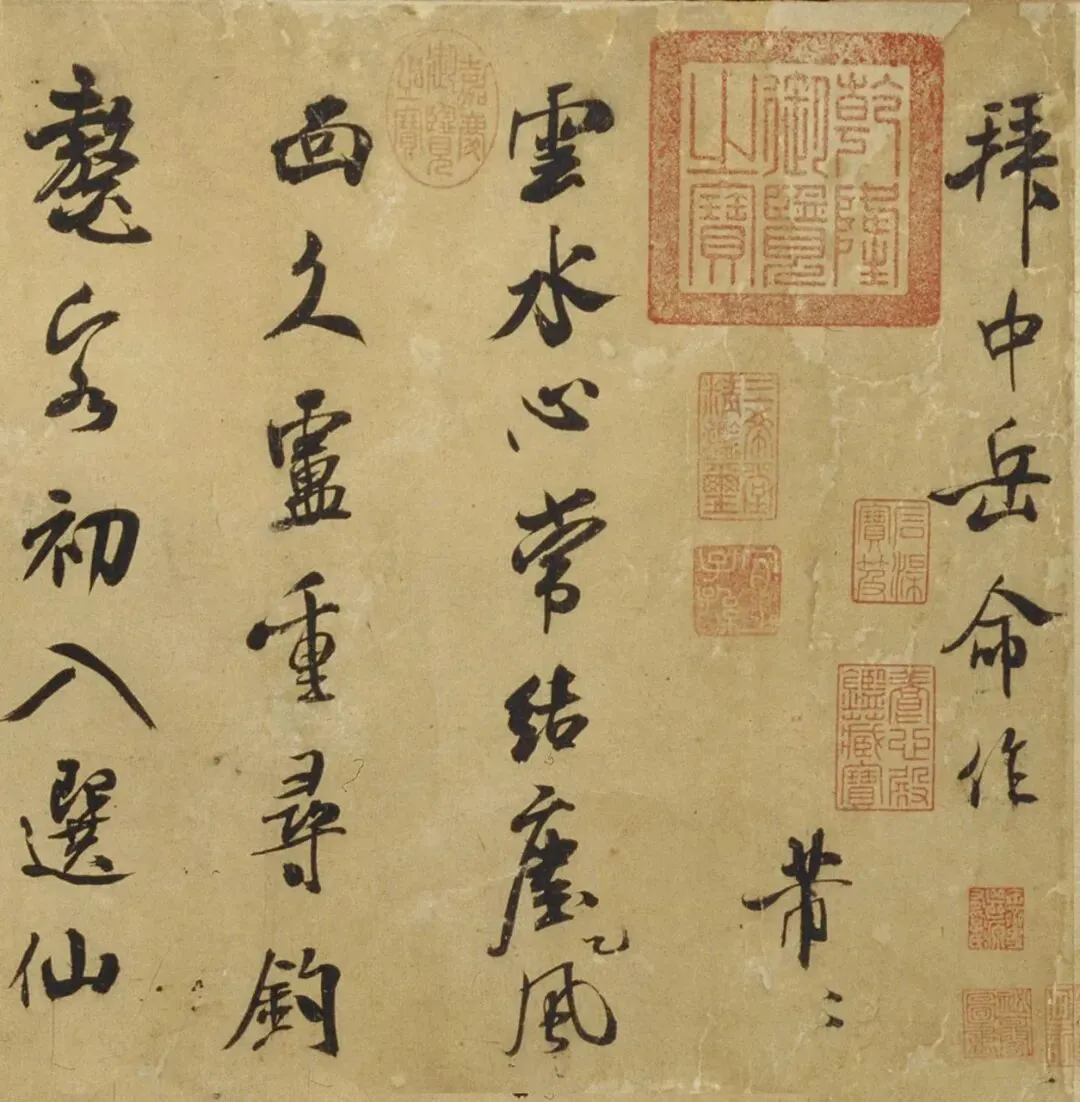 拜中岳命作
芾〻
雲水心常結塵風
面久盧重尋釣
鼇客初入選仙
乾隆御覽之寶
三希堂精鑑璽
宜子孫
石渠寶笈
養心殿鑑藏寶
嘉慶御覽之寶